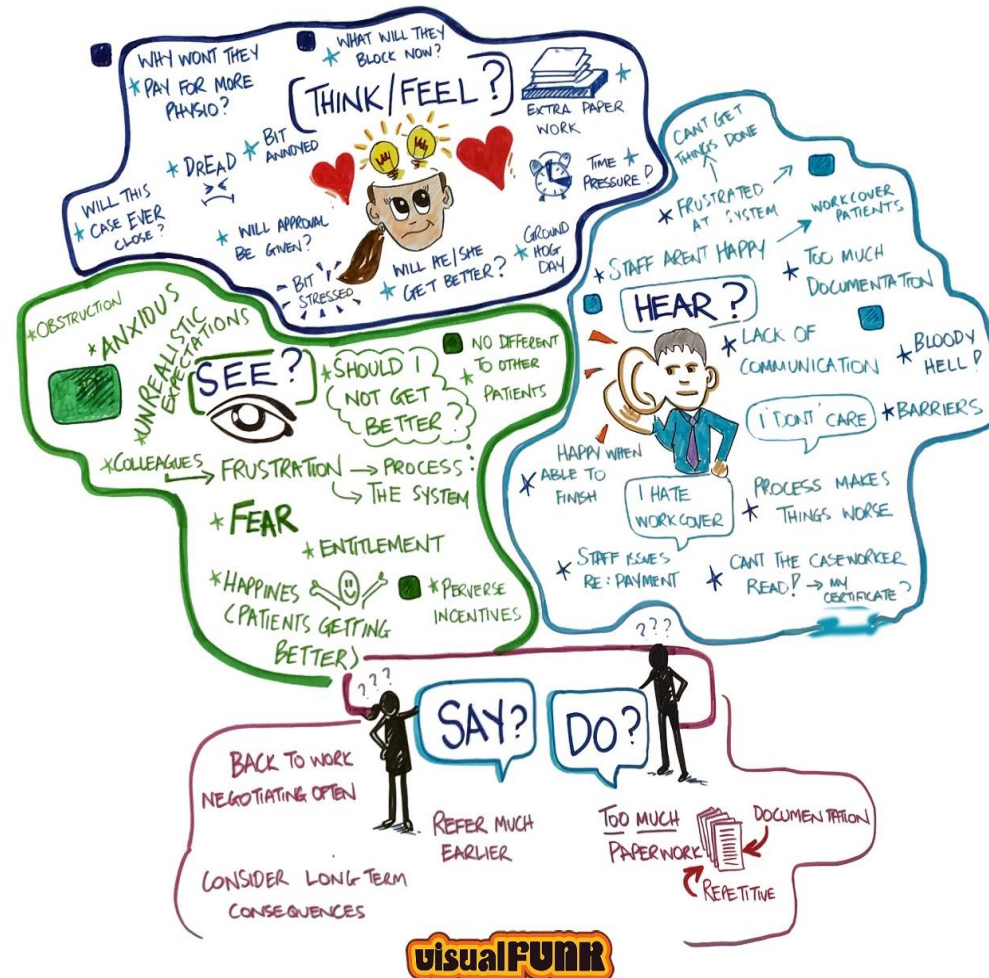 WHY WONT THEY
* PAY FOR MORE
PHYSIO?
* WHAT WILL THEY
BLOCK NOW?
[THINK/FEEL?]
*
EXTRA PAPER
WORK
* DREAD
* BIT
ANNOYED
TIME *
PRESSURE!
WILL THIS
* CASE EVER
CLOSE?
* WILL APPROVAL
BE GIVEN?
BIT
STRESSED
WILL HE/SHE
* GET BETTER?
GROUND
* HOG
DAY
* OBSTRUCTION
* ANXIOUS
* UNREALISTIC
EXPECTATIONS
SEE?
* SHOULD I
NOT GET
BETTER?
NO DIFFERENT
* TO OTHER
PATIENTS
* COLLEAGUES
→ FRUSTRATION → PROCESS
→ THE SYSTEM
* FEAR
* ENTITLEMENT
* HAPPINES
(PATIENTS GETTING
BETTER)
* PERVERSE
INCENTIVES
CANT GET
THINGS DONE
* FRUSTRATED
AT SYSTEM
WORKCOVER
PATIENTS
* STAFF ARENT HAPPY
* TOO MUCH
DOCUMENTATION
HEAR?
* LACK OF
COMMUNICATION
* BLOODY
HELL!
I DONT CARE
* BARRIERS
HAPPY WHEN
* ABLE TO
FINISH
I HATE
WORKCOVER
PROCESS MAKES
* THINGS WORSE
* STAFF ISSUES
RE: PAYMENT
* CANT THE CASEWORKER
READ! → MY
CERTIFICATE?
? ? ?
? ? ?
SAY?
DO?
BACK TO WORK
NEGOTIATING OFTEN
REFER MUCH
EARLIER
CONSIDER LONG TERM
CONSEQUENCES
TOO MUCH
PAPERWORK
DOCUMENTATION
REPETITIVE
visualFUNK